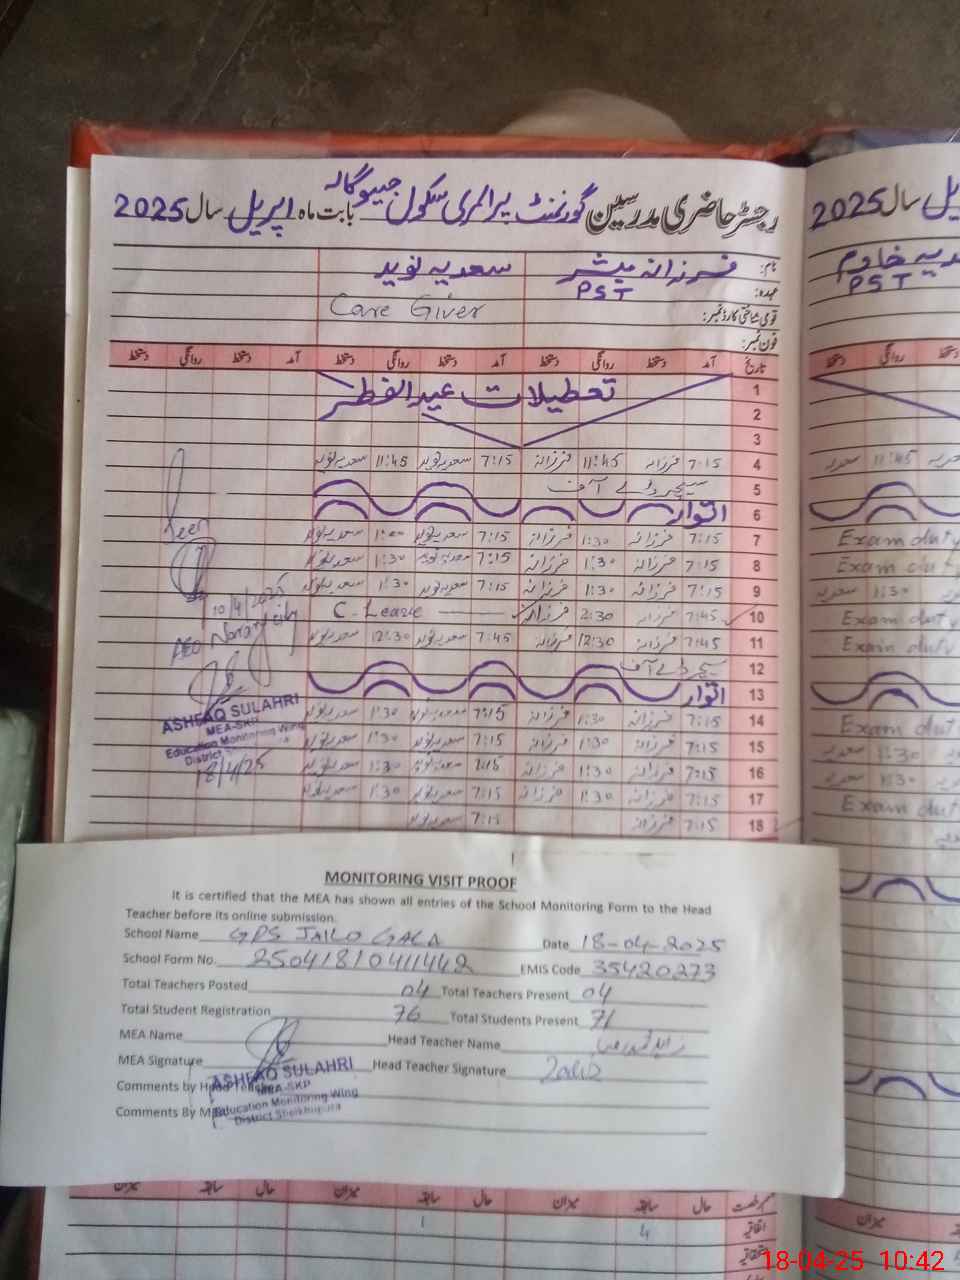 رجسٹر حاضری مدرسین گورنمنٹ پرائمری سکول جیلو گالہ بابت ماہ اپریل سال 2025
نام: فرزانہ مبشر سعدیہ نوید
عہدہ: PST Care Giver
قومی شناختی کارڈ نمبر:
فون نمبر:
تاریخ آمد دستخط روانگی دستخط آمد دستخط روانگی دستخط آمد دستخط روانگی دستخط
1 تعطیلات عید الفطر
2
3
4 7:15 فرزانہ 11:45 فرزانہ 7:15 سعدیہ نوید 11:45 سعدیہ نوید
5 سیچر ڈے آف
6 اتوار
7 7:15 فرزانہ 1:30 فرزانہ 7:15 سعدیہ نوید سعدیہ نوید
8 7:15 فرزانہ 1:30 فرزانہ 7:15 سعدیہ نوید 1:30 سعدیہ نوید
9 7:15 فرزانہ 1:30 فرزانہ 7:15 سعدیہ نوید 1:30 سعدیہ نوید
10 7:45 فرزانہ 2:30 فرزانہ C. Leave
11 7:45 فرزانہ 12:30 فرزانہ 7:45 سعدیہ نوید 12:30 سعدیہ نوید
12 سیچر ڈے آف
13 اتوار
14 7:15 فرزانہ 1:30 فرزانہ 7:15 سعدیہ نوید 1:30 سعدیہ نوید
15 7:15 فرزانہ 1:30 فرزانہ 7:15 سعدیہ نوید 1:30 سعدیہ نوید
16 7:15 فرزانہ 1:30 فرزانہ 7:15 سعدیہ نوید 1:30 سعدیہ نوید
17 7:15 فرزانہ 1:30 فرزانہ 7:15 سعدیہ نوید 1:30 سعدیہ نوید
18 7:15 فرزانہ 7:15 سعدیہ نوید
Seen
10/4/2025
AEO Narang City
ASHFAQ SULAHRI
MEA-SKP
Education Monitoring Wing
District
18/4/25
سال 2025
خادم
PST
روانگی دستخط
11:45 سعدیہ
Exam duty
Exam duty
1:30 سعدیہ
Exam duty
Exam duty
Exam duty
1:30 سعدیہ
1:30 سعدیہ
Exam duty
MONITORING VISIT PROOF
It is certified that the MEA has shown all entries of the School Monitoring Form to the Head
Teacher before its online submission.
School Name GPS JAILO GALA Date 18-04-2025
School Form No. 25041810411442 EMIS Code 35420273
Total Teachers Posted 04 Total Teachers Present 04
Total Student Registration 76 Total Students Present 71
MEA Name Head Teacher Name
MEA Signature Head Teacher Signature
Comments by Head Teacher
Comments By MEA
ASHFAQ SULAHRI
MEA-SKP
Education Monitoring Wing
District Sheikhupura
حال سابقہ میزان حال سابقہ میزان حال سابقہ میزان
اتفاقیہ 4 1
میزان
18-04-25 10:42